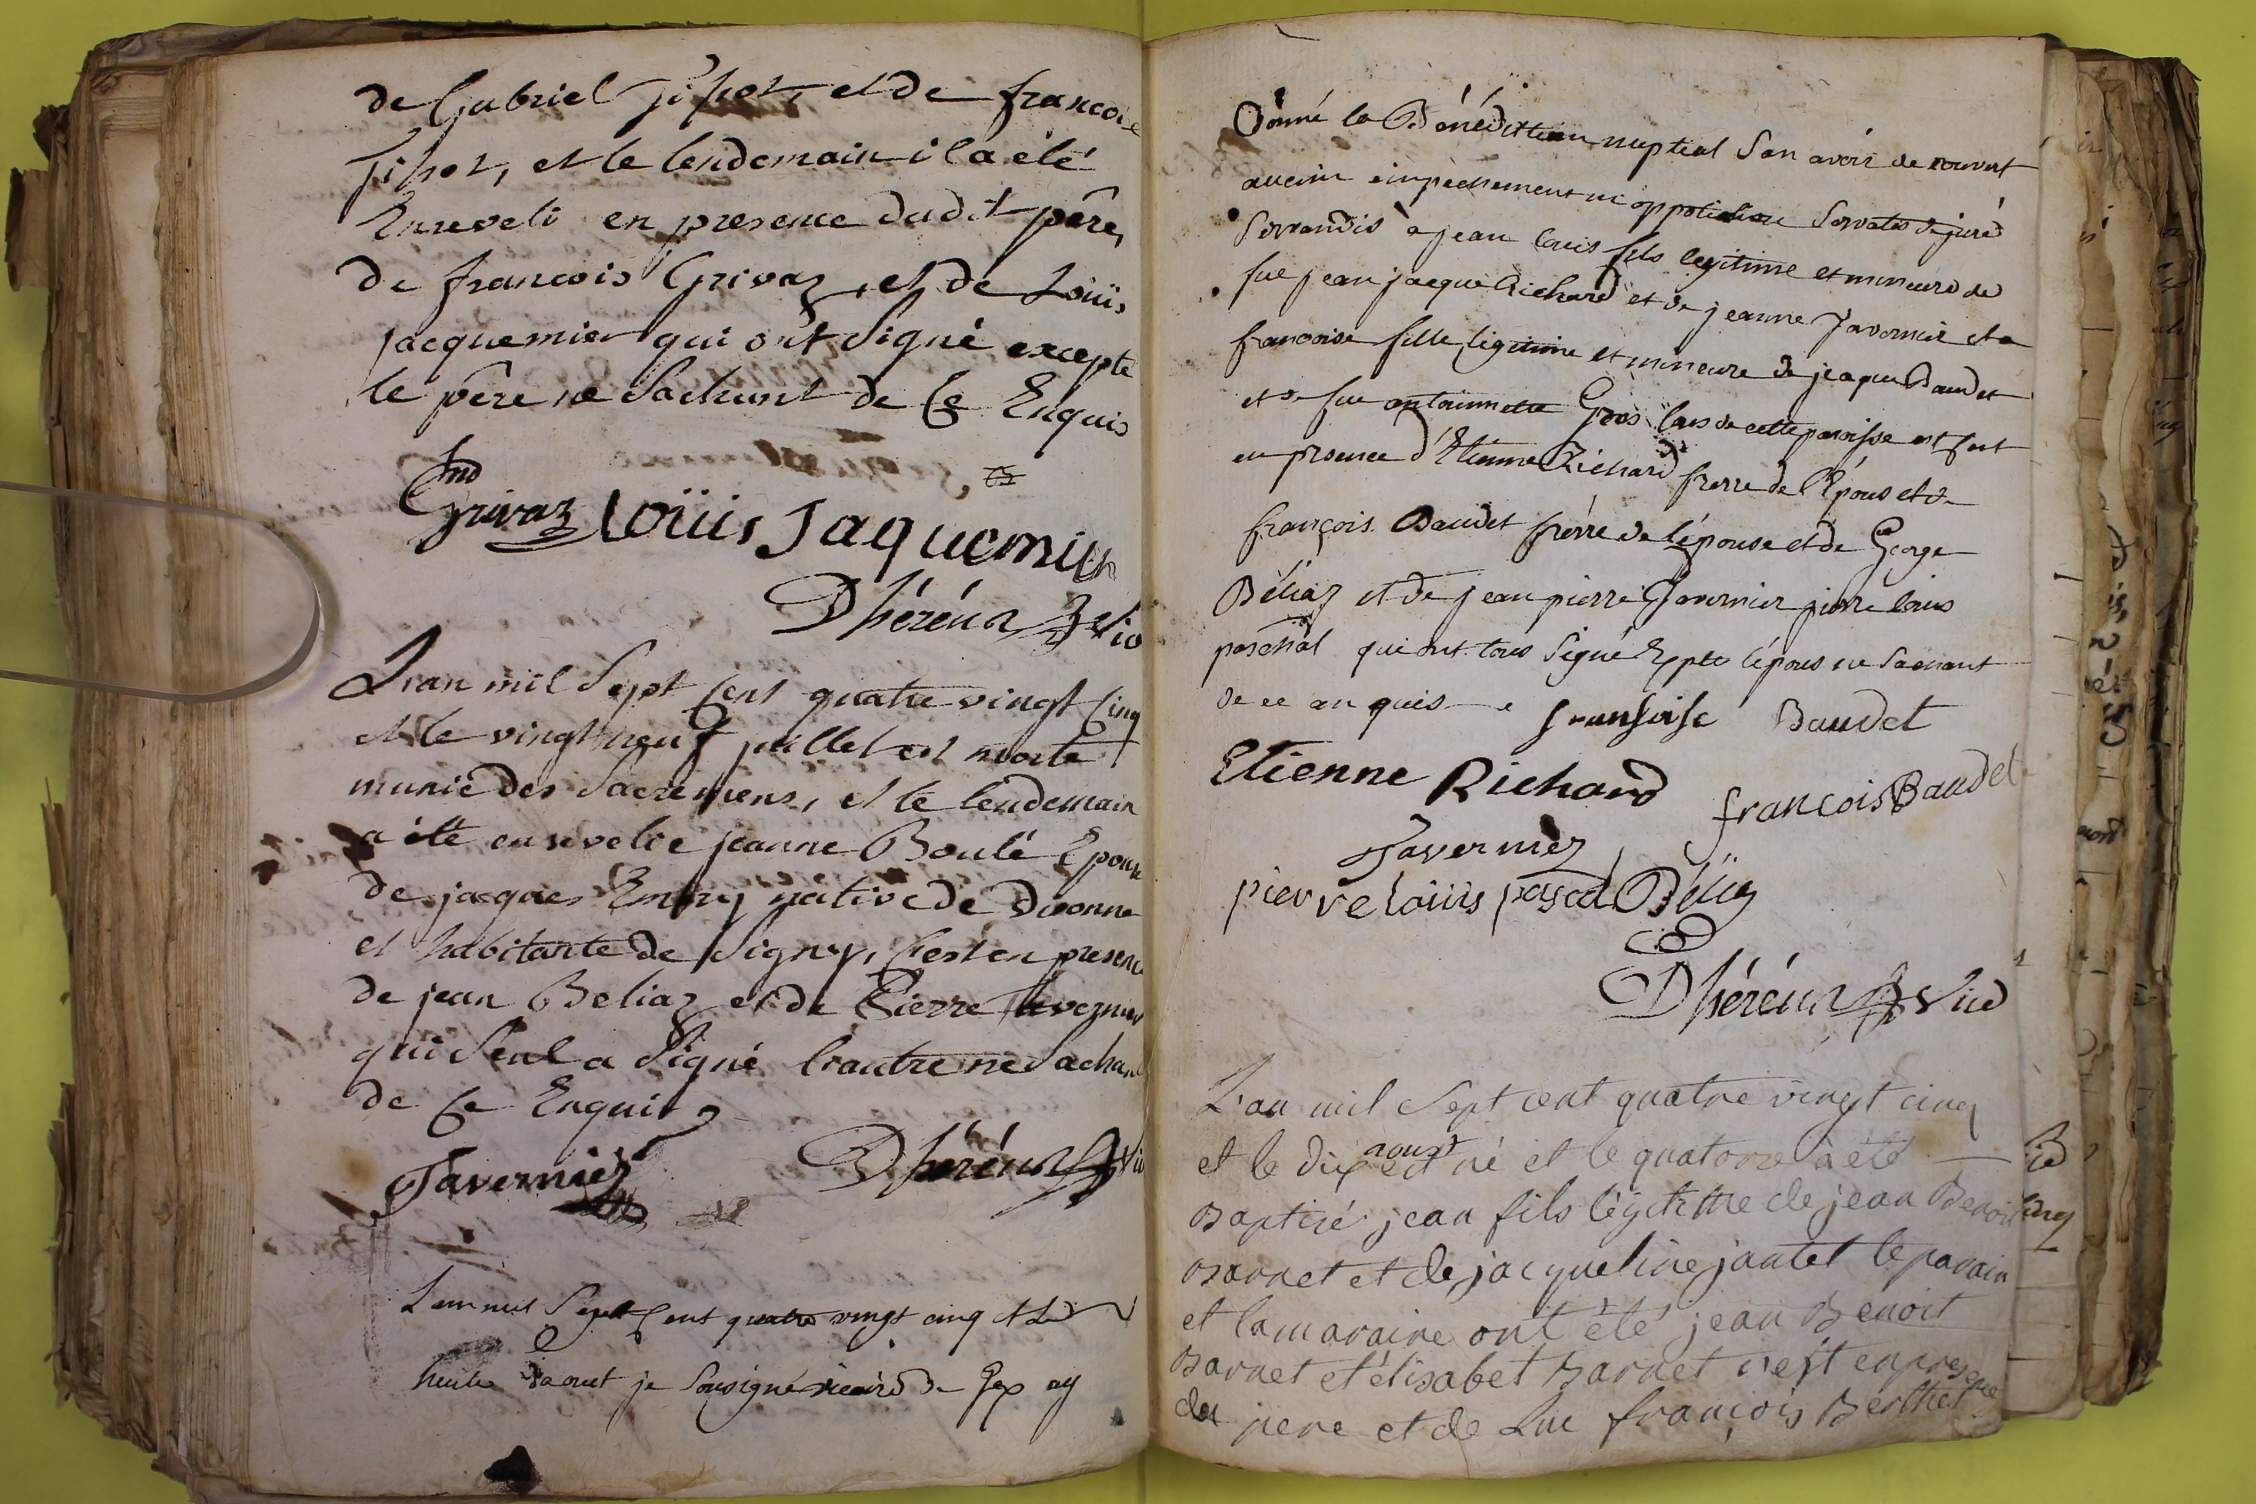 de Gabriel Tipot, et de francoise
Tipot, et le lendemain il a été
Enseveli en presence dudit père,
de francois Grivaz, et de Loüis
jacquemier qui ont signé excepté
le père ne Sachant de Ce Enquis
Grivaz Loüis Jaquemier
Dhéréns Vic
L'an mil Sept Cent quatre vingt Cinq
et le vingt neuf juillet est morte
munie des Sacremens, et le lendemain
a été ensevelie jeanne Boulé Epouse
de jacques Emery native de Divonne
et habitante de Signy, C'est en presence
de jean Beliaz et de Pierre Tavernier
qui Seul a Signé l'autre ne Sachant
de Ce Enquis
Tavernier Dhéréns Vic
L'an mil Sept Cent quatre vingt cinq et Le
huite d'aout je Sousigné vicaire de Gex ay
Donné la Bénédiction nuptial San avoir de couvert
aucun empechement ni oppotition Servatis de jure
Servandis à jean louis fils legitime et mineure de
fue jean jacque Richard et de jeanne Tavernier et a
francoise fille legitime et mineure de jeaque Baudet
et de fue antoinnette Gros tous de cette paroisse est fait
en presence d'Etienne Richard frerre de l'Epous et de
françois Baudet frérre de l'épouse et de George
Béliaz et de jean pierre Tavernier pierre louis
paschal qui ont tous Signé Exptes l'épous ne Sachant
de ce an quis fransoise Baudet
Etienne Richard françois Baudet
Tavernier
pierre loüis pascal Béliaz
Dhéréns Vic
L'an mil Sept cent quatre vingt cinq
aoust
et le dix est né et le quatorze a été
Baptisé jean fils légitime de jean Benoit
Barnet et de jacqueline jantet le parain
et la maraine ont été jean Benoit
Barnet et élisabet Barnet c'est en presence
du pere et de Luc françois Berthet